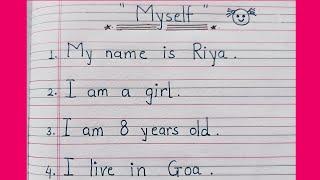 " Myself "
1. My name is Riya.
2. I am a girl.
3. I am 8 years old.
4. I live in Goa.